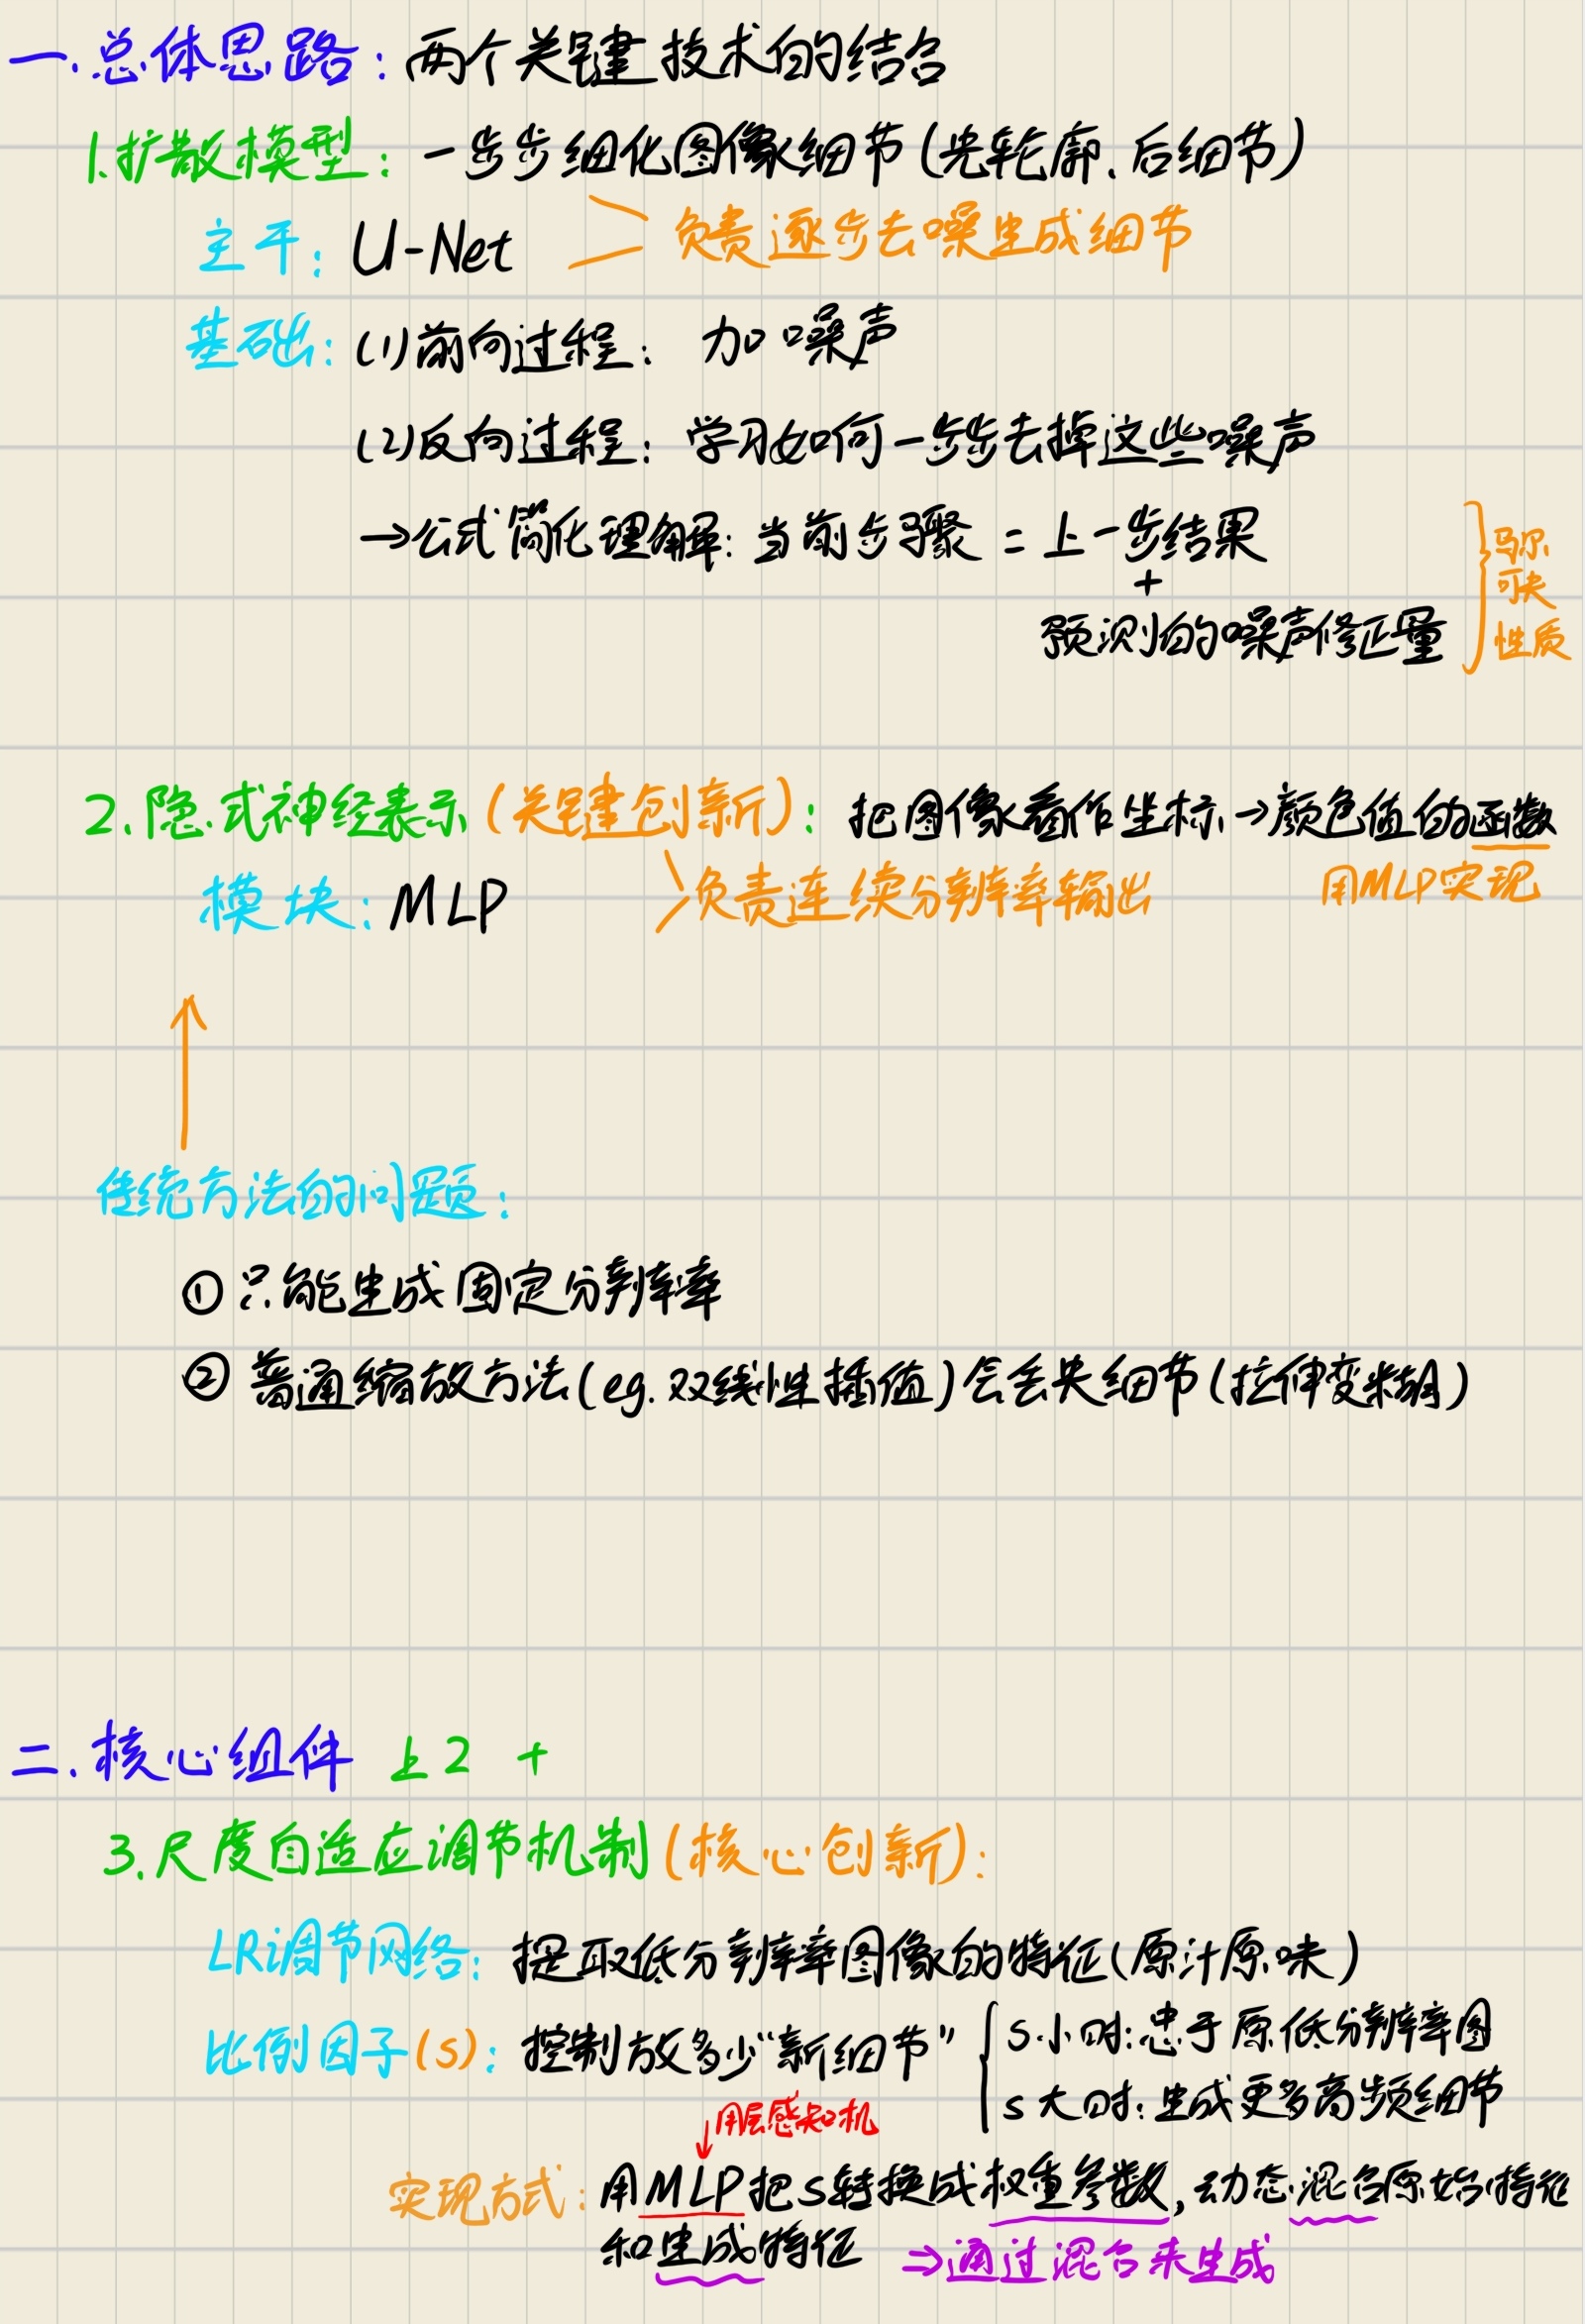 一.总体思路：两个关键技术的结合
1.扩散模型：一步步细化图像细节(先轮廓.后细节)
主干：U-Net 负责逐步去噪生成细节
基础：(1)前向过程：加噪声
(2)反向过程：学习如何一步步去掉这些噪声
→公式简化理解：当前步骤 = 上一步结果
+
预测的噪声修正量
马尔
可夫
性质
2.隐式神经表示(关键创新)：把图像看作坐标→颜色值的函数
模块：MLP 负责连续分辨率输出 用MLP实现
传统方法的问题：
① 只能生成固定分辨率
② 普通缩放方法(eg.双线性插值)会丢失细节(拉伸变糊)
二.核心组件 上2 +
3.尺度自适应调节机制(核心创新)：
LR调节网络：提取低分辨率图像的特征(原汁原味)
比例因子(s)：控制放多少“新细节” s小时：忠于原低分辨率图
s大时：生成更多高频细节
↓层感知机
实现方式：用MLP把s转换成权重参数,动态混合原始特征
和生成特征 ⇒通过混合来生成